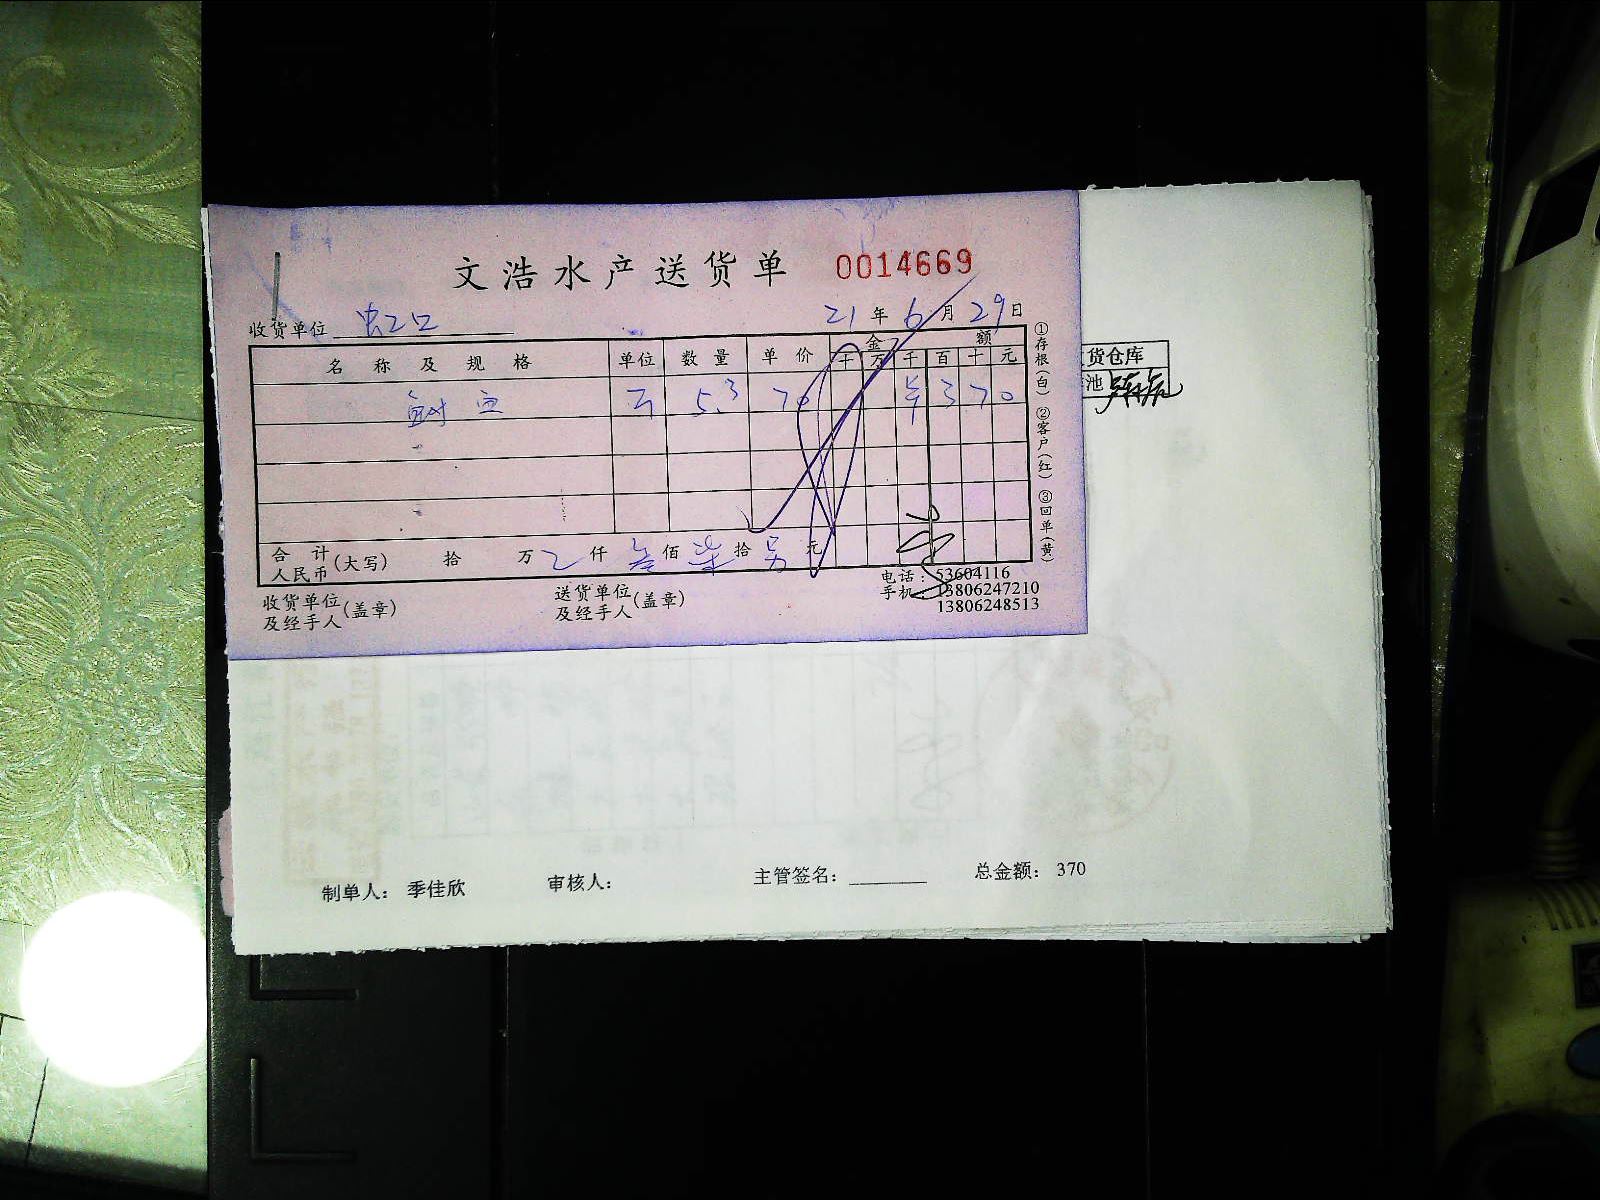 文浩水产送货单 0014669
收货单位 虹口 21年6月29日
名称及规格 单位 数量 单价 金额
十 万 千 百 十 元
斤 5.3 70 ¥ 3 7 0
合计人民币(大写) 拾 万 仟 叁佰 柒拾 另元
收货单位及经手人(盖章) 送货单位及经手人(盖章)
电话:53604116
手机:13806247210
13806248513
①存根(白) ②客户(红) ③回单(黄)
货仓库
池
制单人: 季佳欣 审核人: 主管签名: 总金额: 370